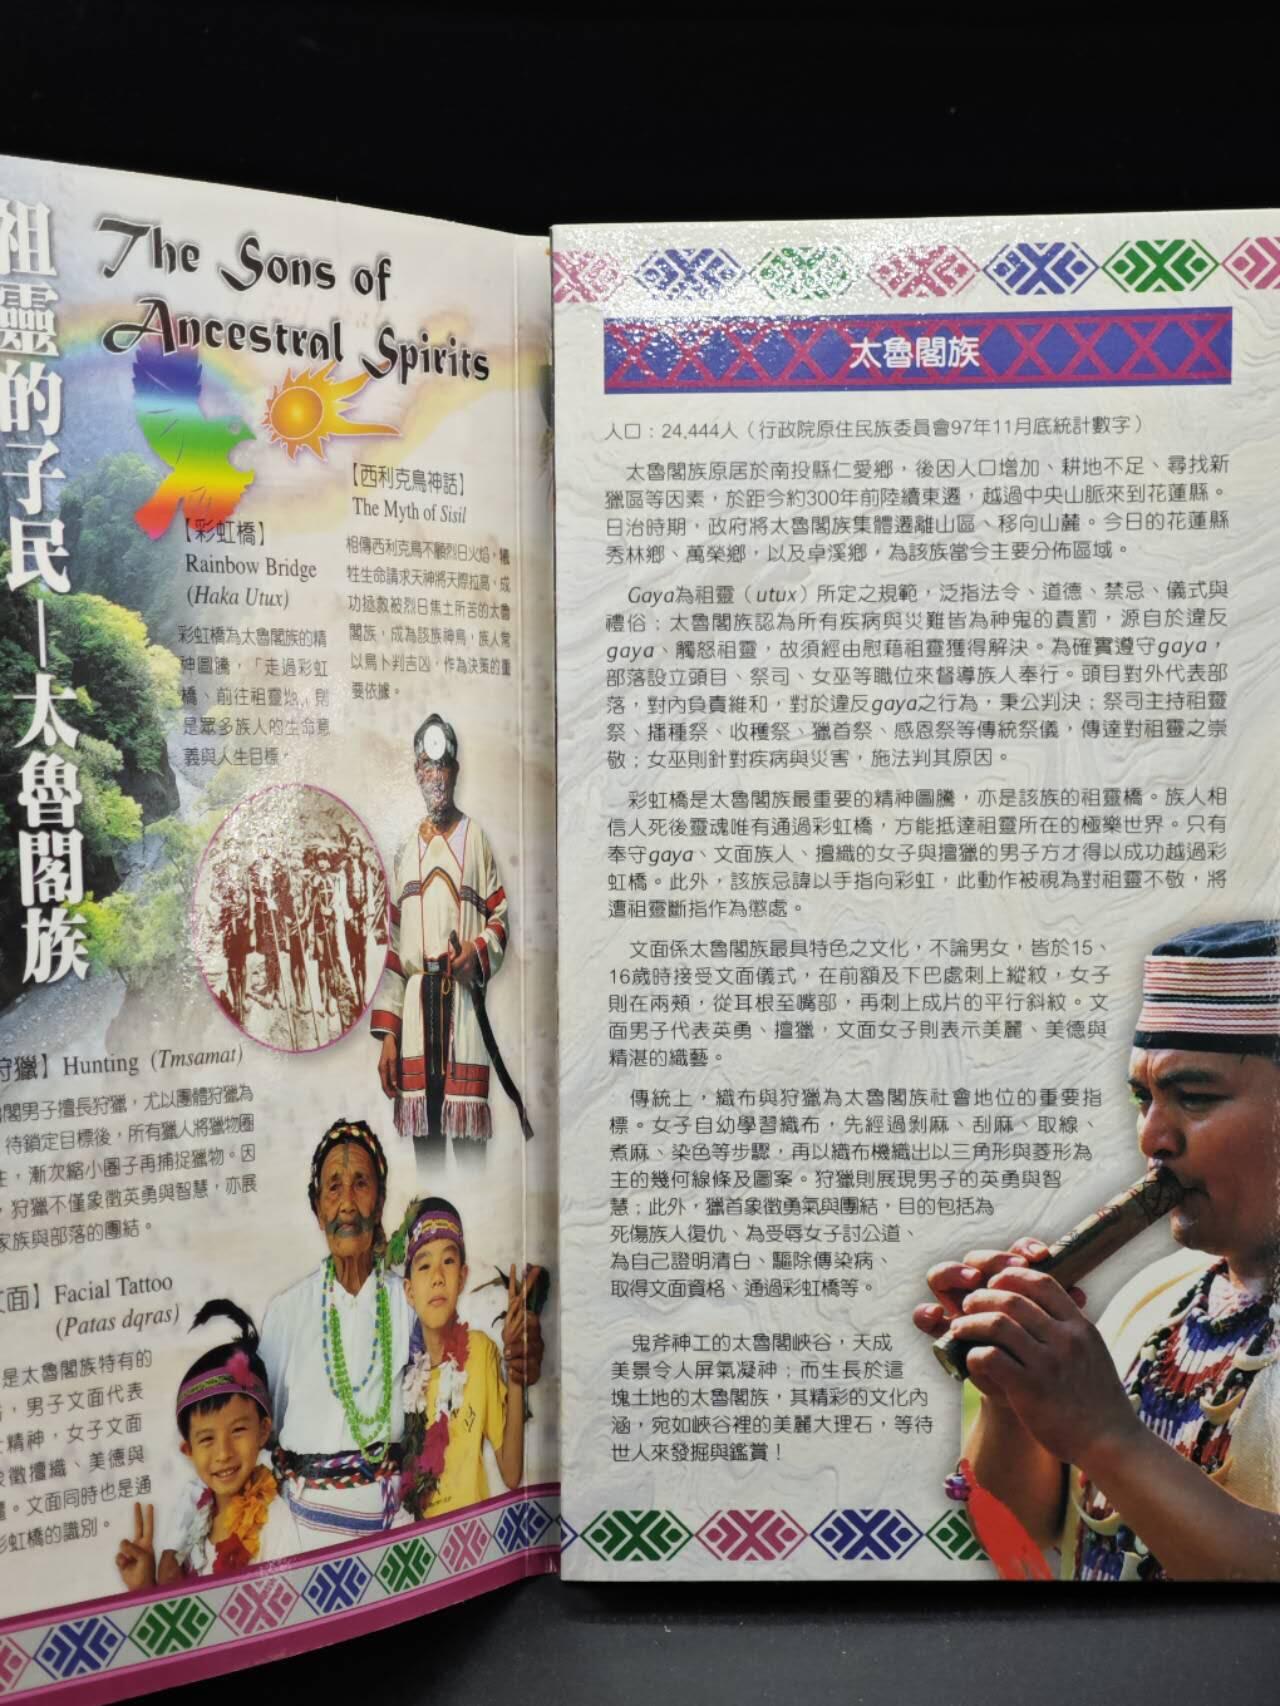 祖靈的子民─太魯閣族
The Sons of
Ancestral Spirits
【彩虹橋】
Rainbow Bridge
(Haka Utux)
彩虹橋為太魯閣族的精
神圖騰，「走過彩虹
橋、前往祖靈地」則
是眾多族人的生命意
義與人生目標。
【西利克鳥神話】
The Myth of Sisil
相傳西利克鳥不願烈日火焰，犧
牲生命請求天神將天際拉高，成
功拯救被烈日焦土所苦的太魯
閣族，成為該族神鳥，族人常
以鳥卜判吉凶，作為決策的重
要依據。
狩獵】Hunting (Tmsamat)
閣男子擅長狩獵，尤以團體狩獵為
，待鎖定目標後，所有獵人將獵物圈
住，漸次縮小圈子再捕捉獵物。因
，狩獵不僅象徵英勇與智慧，亦展
家族與部落的團結。
文面】Facial Tattoo
(Patas dqras)
是太魯閣族特有的
，男子文面代表
精神，女子文面
象徵擅織、美德與
。文面同時也是通
彩虹橋的識別。
太魯閣族
人口：24,444人（行政院原住民族委員會97年11月底統計數字）
太魯閣族原居於南投縣仁愛鄉，後因人口增加、耕地不足、尋找新
獵區等因素，於距今約300年前陸續東遷，越過中央山脈來到花蓮縣。
日治時期，政府將太魯閣族集體遷離山區、移向山麓。今日的花蓮縣
秀林鄉、萬榮鄉，以及卓溪鄉，為該族當今主要分佈區域。
Gaya為祖靈（utux）所定之規範，泛指法令、道德、禁忌、儀式與
禮俗；太魯閣族認為所有疾病與災難皆為神鬼的責罰，源自於違反
gaya、觸怒祖靈，故須經由慰藉祖靈獲得解決。為確實遵守gaya，
部落設立頭目、祭司、女巫等職位來督導族人奉行。頭目對外代表部
落，對內負責維和，對於違反gaya之行為，秉公判決；祭司主持祖靈
祭、播種祭、收穫祭、獵首祭、感恩祭等傳統祭儀，傳達對祖靈之崇
敬；女巫則針對疾病與災害，施法判其原因。
彩虹橋是太魯閣族最重要的精神圖騰，亦是該族的祖靈橋。族人相
信人死後靈魂唯有通過彩虹橋，方能抵達祖靈所在的極樂世界。只有
奉守gaya、文面族人、擅織的女子與擅獵的男子方才得以成功越過彩
虹橋。此外，該族忌諱以手指向彩虹，此動作被視為對祖靈不敬，將
遭祖靈斷指作為懲處。
文面係太魯閣族最具特色之文化，不論男女，皆於15、
16歲時接受文面儀式，在前額及下巴處刺上縱紋，女子
則在兩頰，從耳根至嘴部，再刺上成片的平行斜紋。文
面男子代表英勇、擅獵，文面女子則表示美麗、美德與
精湛的織藝。
傳統上，織布與狩獵為太魯閣族社會地位的重要指
標。女子自幼學習織布，先經過剝麻、刮麻、取線、
煮麻、染色等步驟，再以織布機織出以三角形與菱形為
主的幾何線條及圖案。狩獵則展現男子的英勇與智
慧；此外，獵首象徵勇氣與團結，目的包括為
死傷族人復仇、為受辱女子討公道、
為自己證明清白、驅除傳染病、
取得文面資格、通過彩虹橋等。
鬼斧神工的太魯閣峽谷，天成
美景令人屏氣凝神；而生長於這
塊土地的太魯閣族，其精彩的文化內
涵，宛如峽谷裡的美麗大理石，等待
世人來發掘與鑑賞！